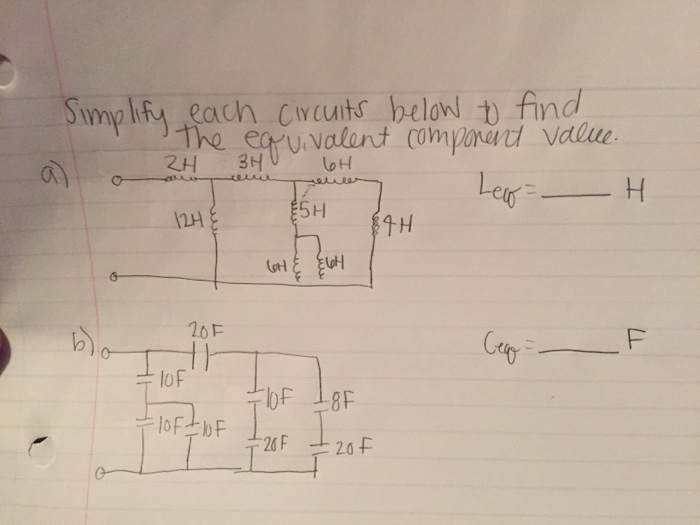 Simplify each circuits below to find
the equivalent component value.
a)
2H 3H 6H
Leq = ____ H
12H 5H 4H
6H 6H
b)
20F
Ceq = ____ F
10F 10F 8F
10F 10F 20F 20F